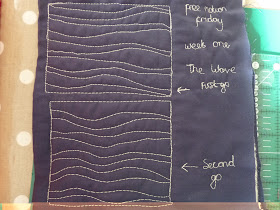 free motion
friday
week one
The Wave
First go
← Second
go